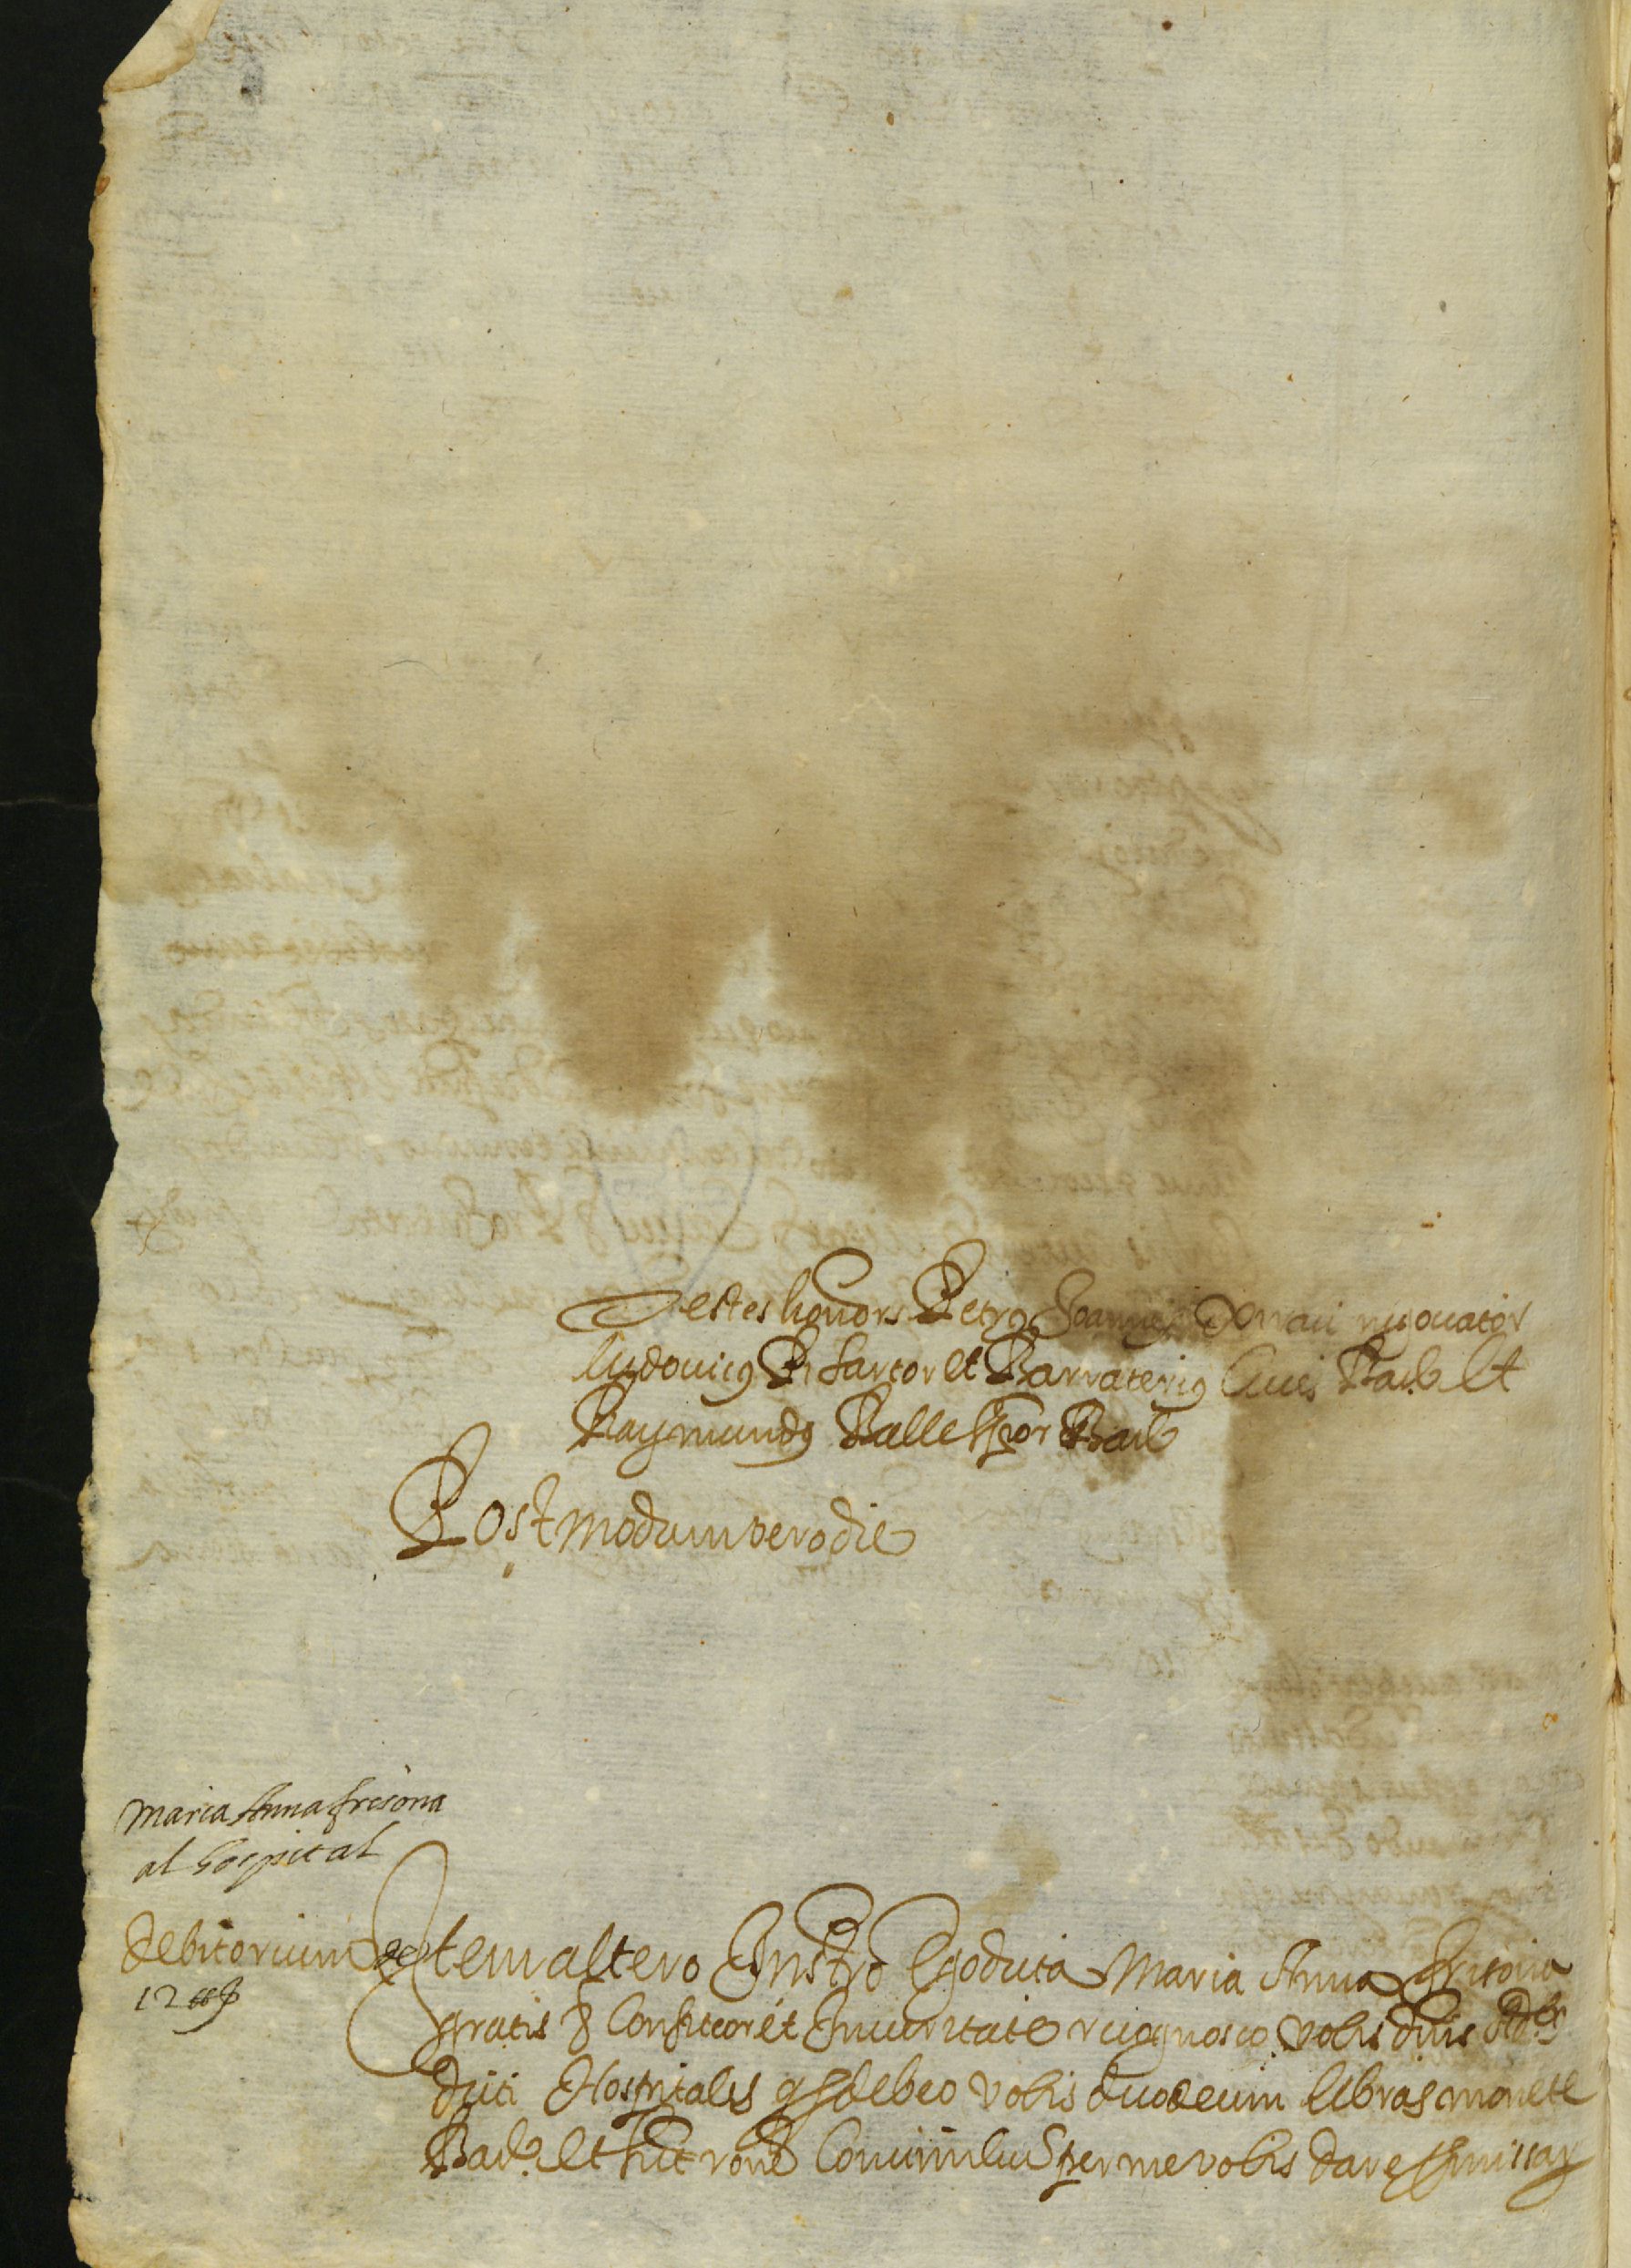 Testes honors Petrus Joannes negotiator
Ludovicus Pi sartor et Barraterius Cives Barc. et
Raymundus Balle scriptor Barc.
Postmodum vero die
Maria Anna frisona
al hospital
debitorium de
12 ££
Item altero Instro Ego dicta Maria Anna Frisona
gratis & Confiteor et In veritate recognosco vobis dnis Adtribus
dicti Hospitalis qs debeo vobis duodecim libras monete
Barc. Et sut rone Convim per me vobis dare